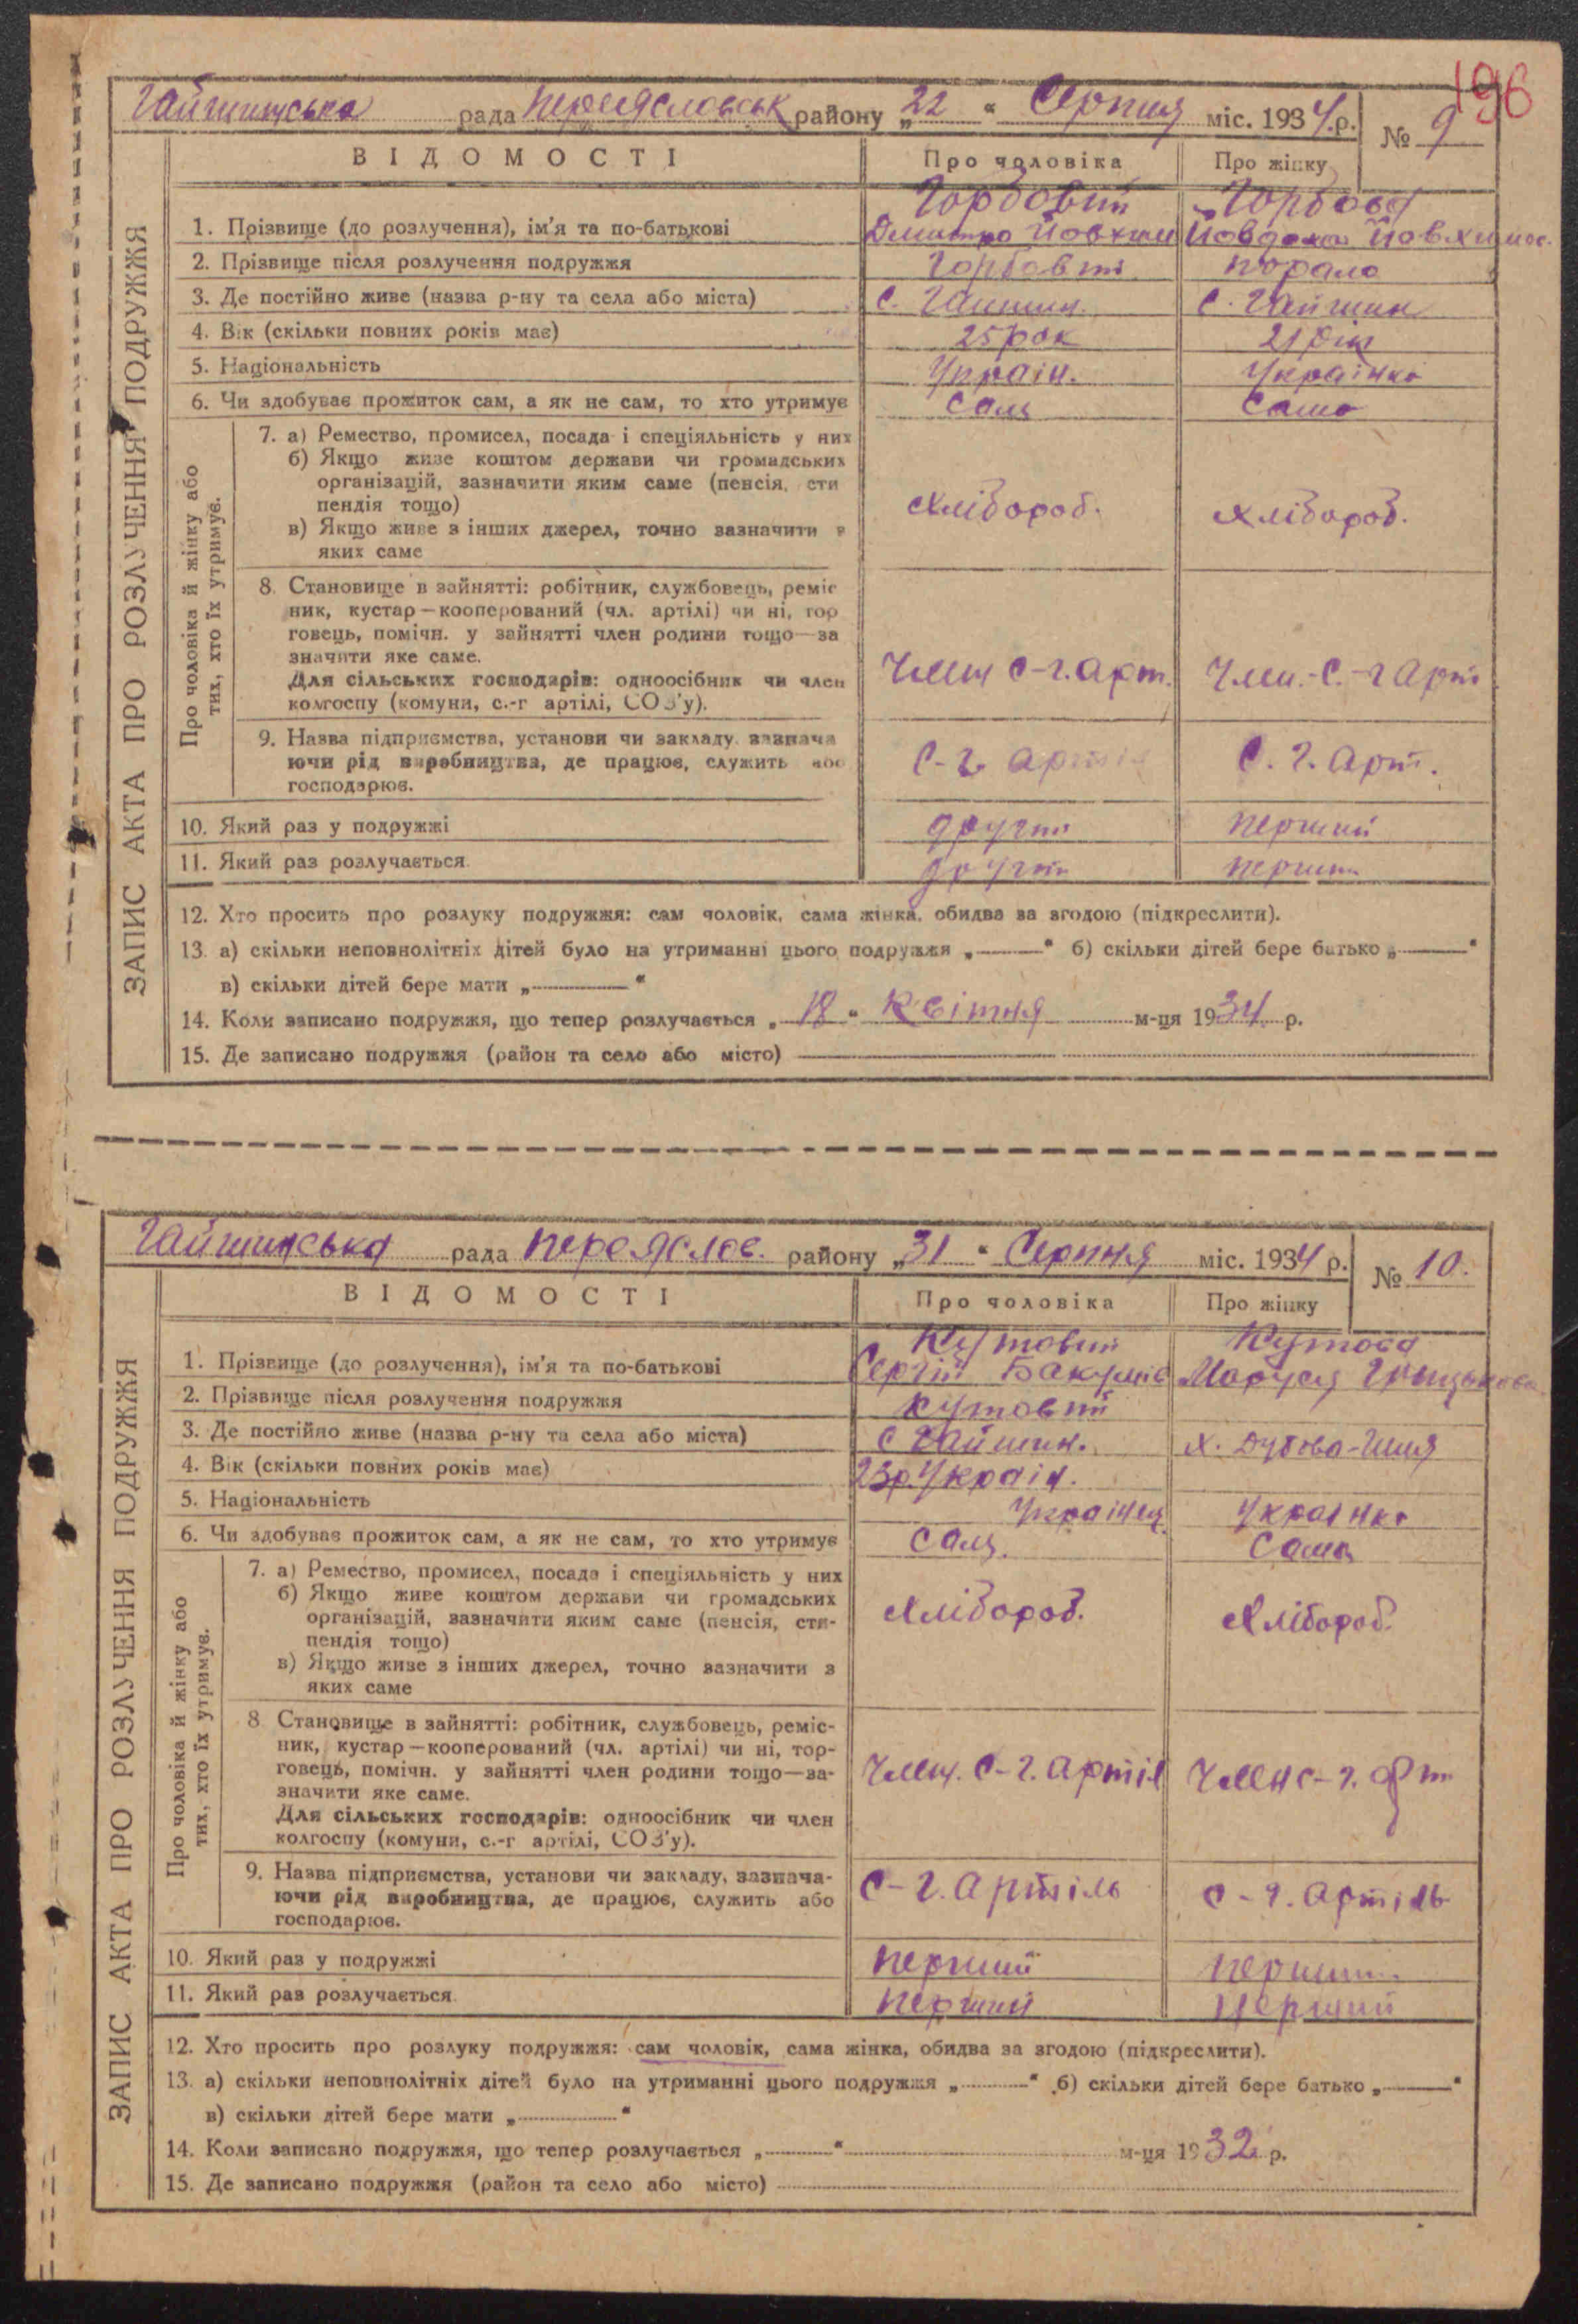 196
Гайшинська рада Переяславськ району „22“ Серпня міс. 1934 р. № 9
ВІДОМОСТІ Про чоловіка Про жінку
Горбовий Горбова
1. Прізвище (до розлучення), ім'я та по-батькові Дмитро Йовхим Йовдоха Йовхимов.
2. Прізвище після розлучення подружжя Горбовий
3. Де постійно живе (назва р-ну та села або міста) с. Гайшин. с. Гайшин
4. Вік (скільки повних років має) 25 рок 21 рік
5. Національність Україн. Українка
6. Чи здобуває прожиток сам, а як не сам, то хто утримує Сам Сама
7. а) Ремество, промисел, посада і спеціяльність у них
б) Якщо живе коштом держави чи громадських
організацій, зазначити яким саме (пенсія, сти
пендія тощо) Хлібороб. Хлібороб.
в) Якщо живе з інших джерел, точно зазначити з
яких саме
8. Становище в зайнятті: робітник, службовець, реміс
ник, кустар—кооперований (чл. артілі) чи ні, тор
говець, помічн. у зайнятті член родини тощо—за
значити яке саме. Член с-г. арт. Член.-С.-г арт
Для сільських господарів: одноосібник чи член
колгоспу (комуни, с.-г артілі, СОЗ'у).
9. Назва підприємства, установи чи закладу, зазнача
ючи рід виробництва, де працює, служить або С-г артіл С. г. арт.
господарює.
10. Який раз у подружжі другий перший
11. Який раз розлучається другий перший
12. Хто просить про розлуку подружжя: сам чоловік, сама жінка, обидва за згодою (підкреслити).
13. а) скільки неповнолітніх дітей було на утриманні цього подружжя „ “ б) скільки дітей бере батько „ “
в) скільки дітей бере мати „ “
14. Коли записано подружжя, що тепер розлучається „18“ Квітня м-ця 1934 р.
15. Де записано подружжя (район та село або місто)
Про чоловіка й жінку або
тих, хто їх утримує.
ЗАПИС АКТА ПРО РОЗЛУЧЕННЯ ПОДРУЖЖЯ
Гайшинська рада Переяслов. району „31“ Серпня міс. 1934 р. № 10.
ВІДОМОСТІ Про чоловіка Про жінку
Кутовий Кутова
1. Прізвище (до розлучення), ім'я та по-батькові Сергій Маруся
2. Прізвище після розлучення подружжя Кутовий
3. Де постійно живе (назва р-ну та села або міста) с Гайшин. х.
4. Вік (скільки повних років має) 23р. Україн.
5. Національність Українец. Українка
6. Чи здобуває прожиток сам, а як не сам, то хто утримує Сам. Сама
7. а) Ремество, промисел, посада і спеціяльність у них
б) Якщо живе коштом держави чи громадських
організацій, зазначити яким саме (пенсія, сти-
пендія тощо) Хлібороб. Хлібороб.
в) Якщо живе з інших джерел, точно зазначити з
яких саме
8 Становище в зайнятті: робітник, службовець, реміс-
ник, кустар—кооперований (чл. артілі) чи ні, тор-
говець, помічн. у зайнятті член родини тощо—за-
значити яке саме. Член. С-г. артіл Член с-г. арт
Для сільських господарів: одноосібник чи член
колгоспу (комуни, с.-г артілі, СОЗ'у).
9. Назва підприємства, установи чи закладу, зазнача-
ючи рід виробництва, де працює, служить або С-г. артіль с-г. артіль
господарює.
10. Який раз у подружжі перший перший
11. Який раз розлучається перший перший
12. Хто просить про розлуку подружжя: сам чоловік, сама жінка, обидва за згодою (підкреслити).
13. а) скільки неповнолітніх дітей було на утриманні цього подружжя „ “ б) скільки дітей бере батько „ “
в) скільки дітей бере мати „ “
14. Коли записано подружжя, що тепер розлучається „ “ м-ця 1932 р.
15. Де записано подружжя (район та село або місто)
Про чоловіка й жінку або
тих, хто їх утримує.
ЗАПИС АКТА ПРО РОЗЛУЧЕННЯ ПОДРУЖЖЯ